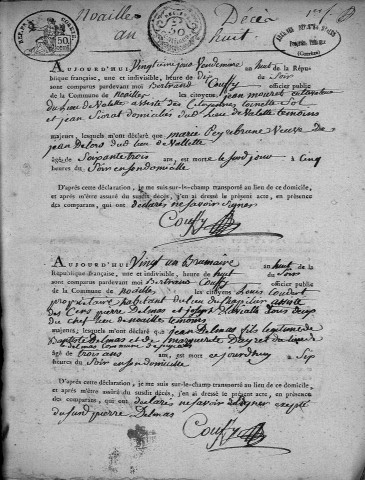 Noailles
Décès
an huit
1er f.
50
AUJOURD'HUI Vingtieme jour Vendemiere an huit de la Répu-
blique française, une et indivisible, heure de Dix du Soir
sont comparus pardevant moi Bertrand Couffy officier public
de la Commune de Noailles les citoyens Jean mouret cultivateur
du Lieu de Valette assisté des Citoyennes toinette Sol
et jean Sirat domiciliés dud Lieu de Valette temoins
majeurs, lesquels m'ont déclaré que marie Peyrebrune Veuve De
jean Delors dud Lieu de Vallette
âgé de Soixante trois ans, est mort le susd jour à Cinq
heures du Soir en son domicille
D'après cette déclaration, je me suis sur-le-champ transporté au lieu de ce domicile,
et après m'être assuré du susdit décès, j'en ai dressé le présent acte, en présence
des comparans, qui ont declarés ne savoir Signer
Couffy
AUJOURD'HUI Vingt un Brumaire an huit de la
République française, une et indivisible, heure de huit du Soir
sont comparus pardevant moi Bertrand Couffy officier public
de la Commune de Noailles les citoyens Louis Coudert
propriétaire habitant du Lieu du assisté
des Cens pierre Delmas et joseph tous deux
du chef Lieu de noailles temoins
majeurs, lesquels m'ont déclaré que jean Delmas fils légitime de
Delmas et de marguerite Deyret du Lieu
âgé de trois ans, est mort ce jourdhuy à Six
heures du Soir en son domicille
D'après cette déclaration, je me suis sur-le-champ transporté au lieu de ce domicile,
et après m'être assuré du susdit décès, j'en ai dressé le présent acte, en présence
des comparans, qui ont declarés ne savoir Signer excepté
du susd pierre Delmas
Couffy